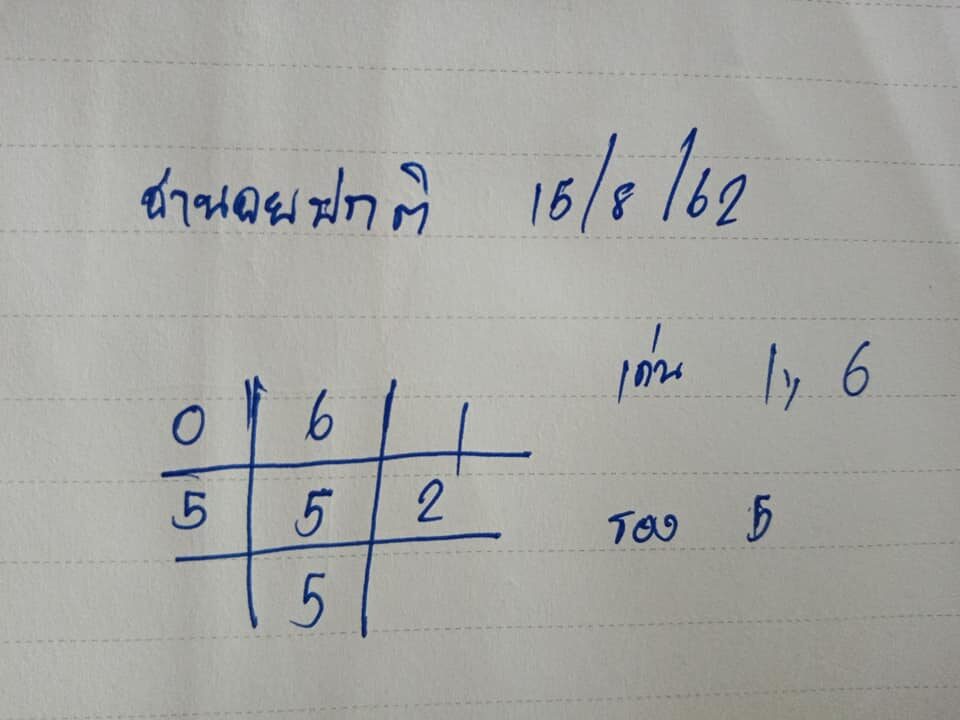 ฮานอยปกติ 15/8/62
เด่น 1, 6
0 6 1
5 5 2
รอง 5
5